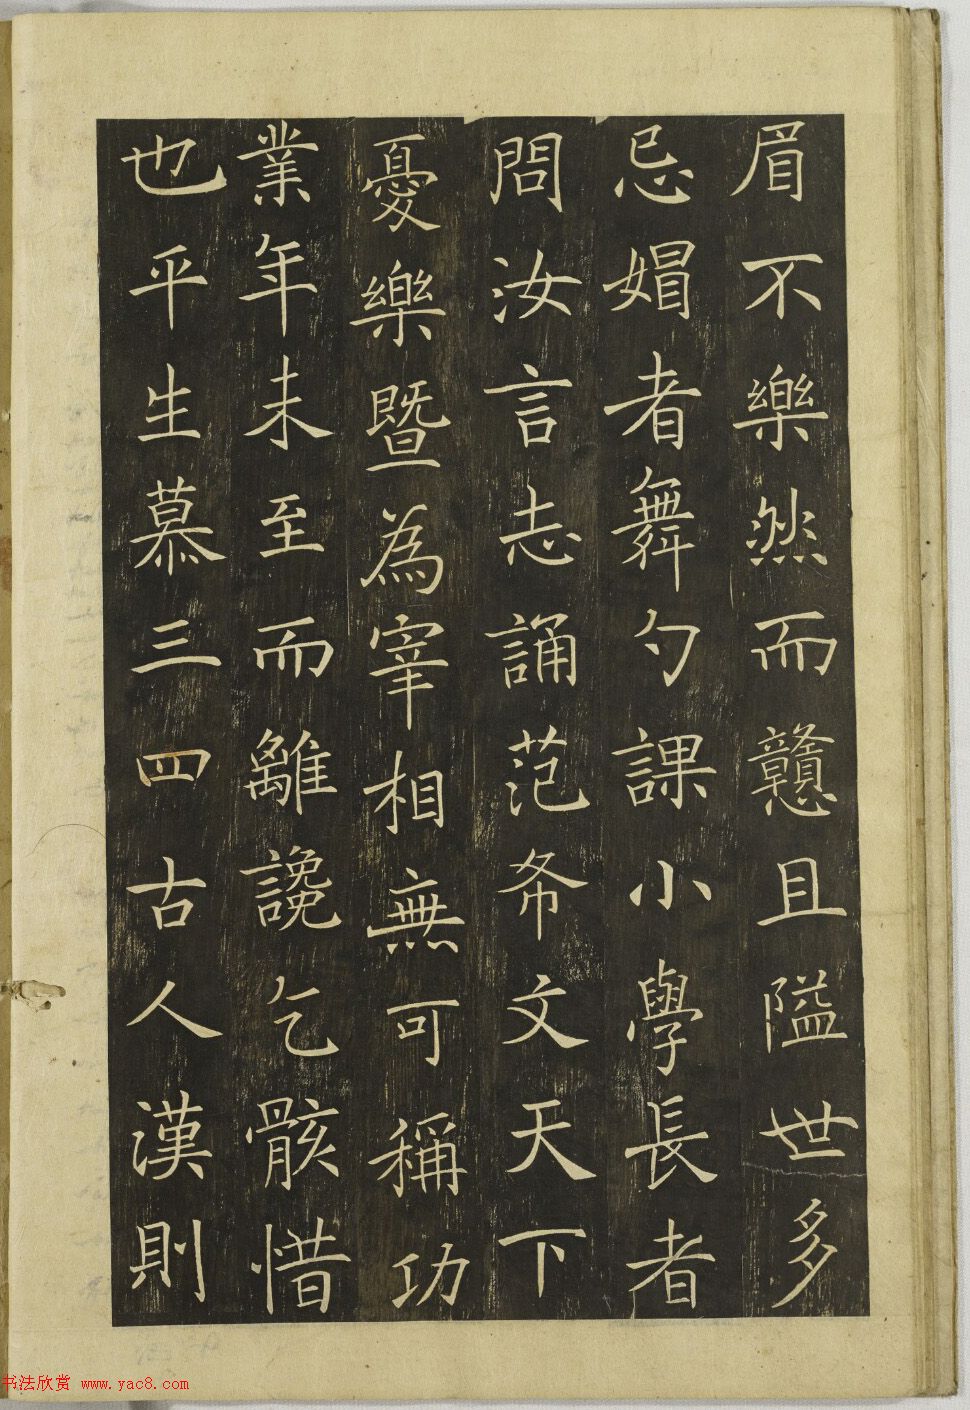 眉不樂然而戇且隘世多
忌媢者舞勺課小學長者
問汝言志誦范希文天下
憂樂暨為宰相無可稱功
業年未至而離讒乞骸惜
也平生慕三四古人漢則
书法欣赏 www.yac8.com